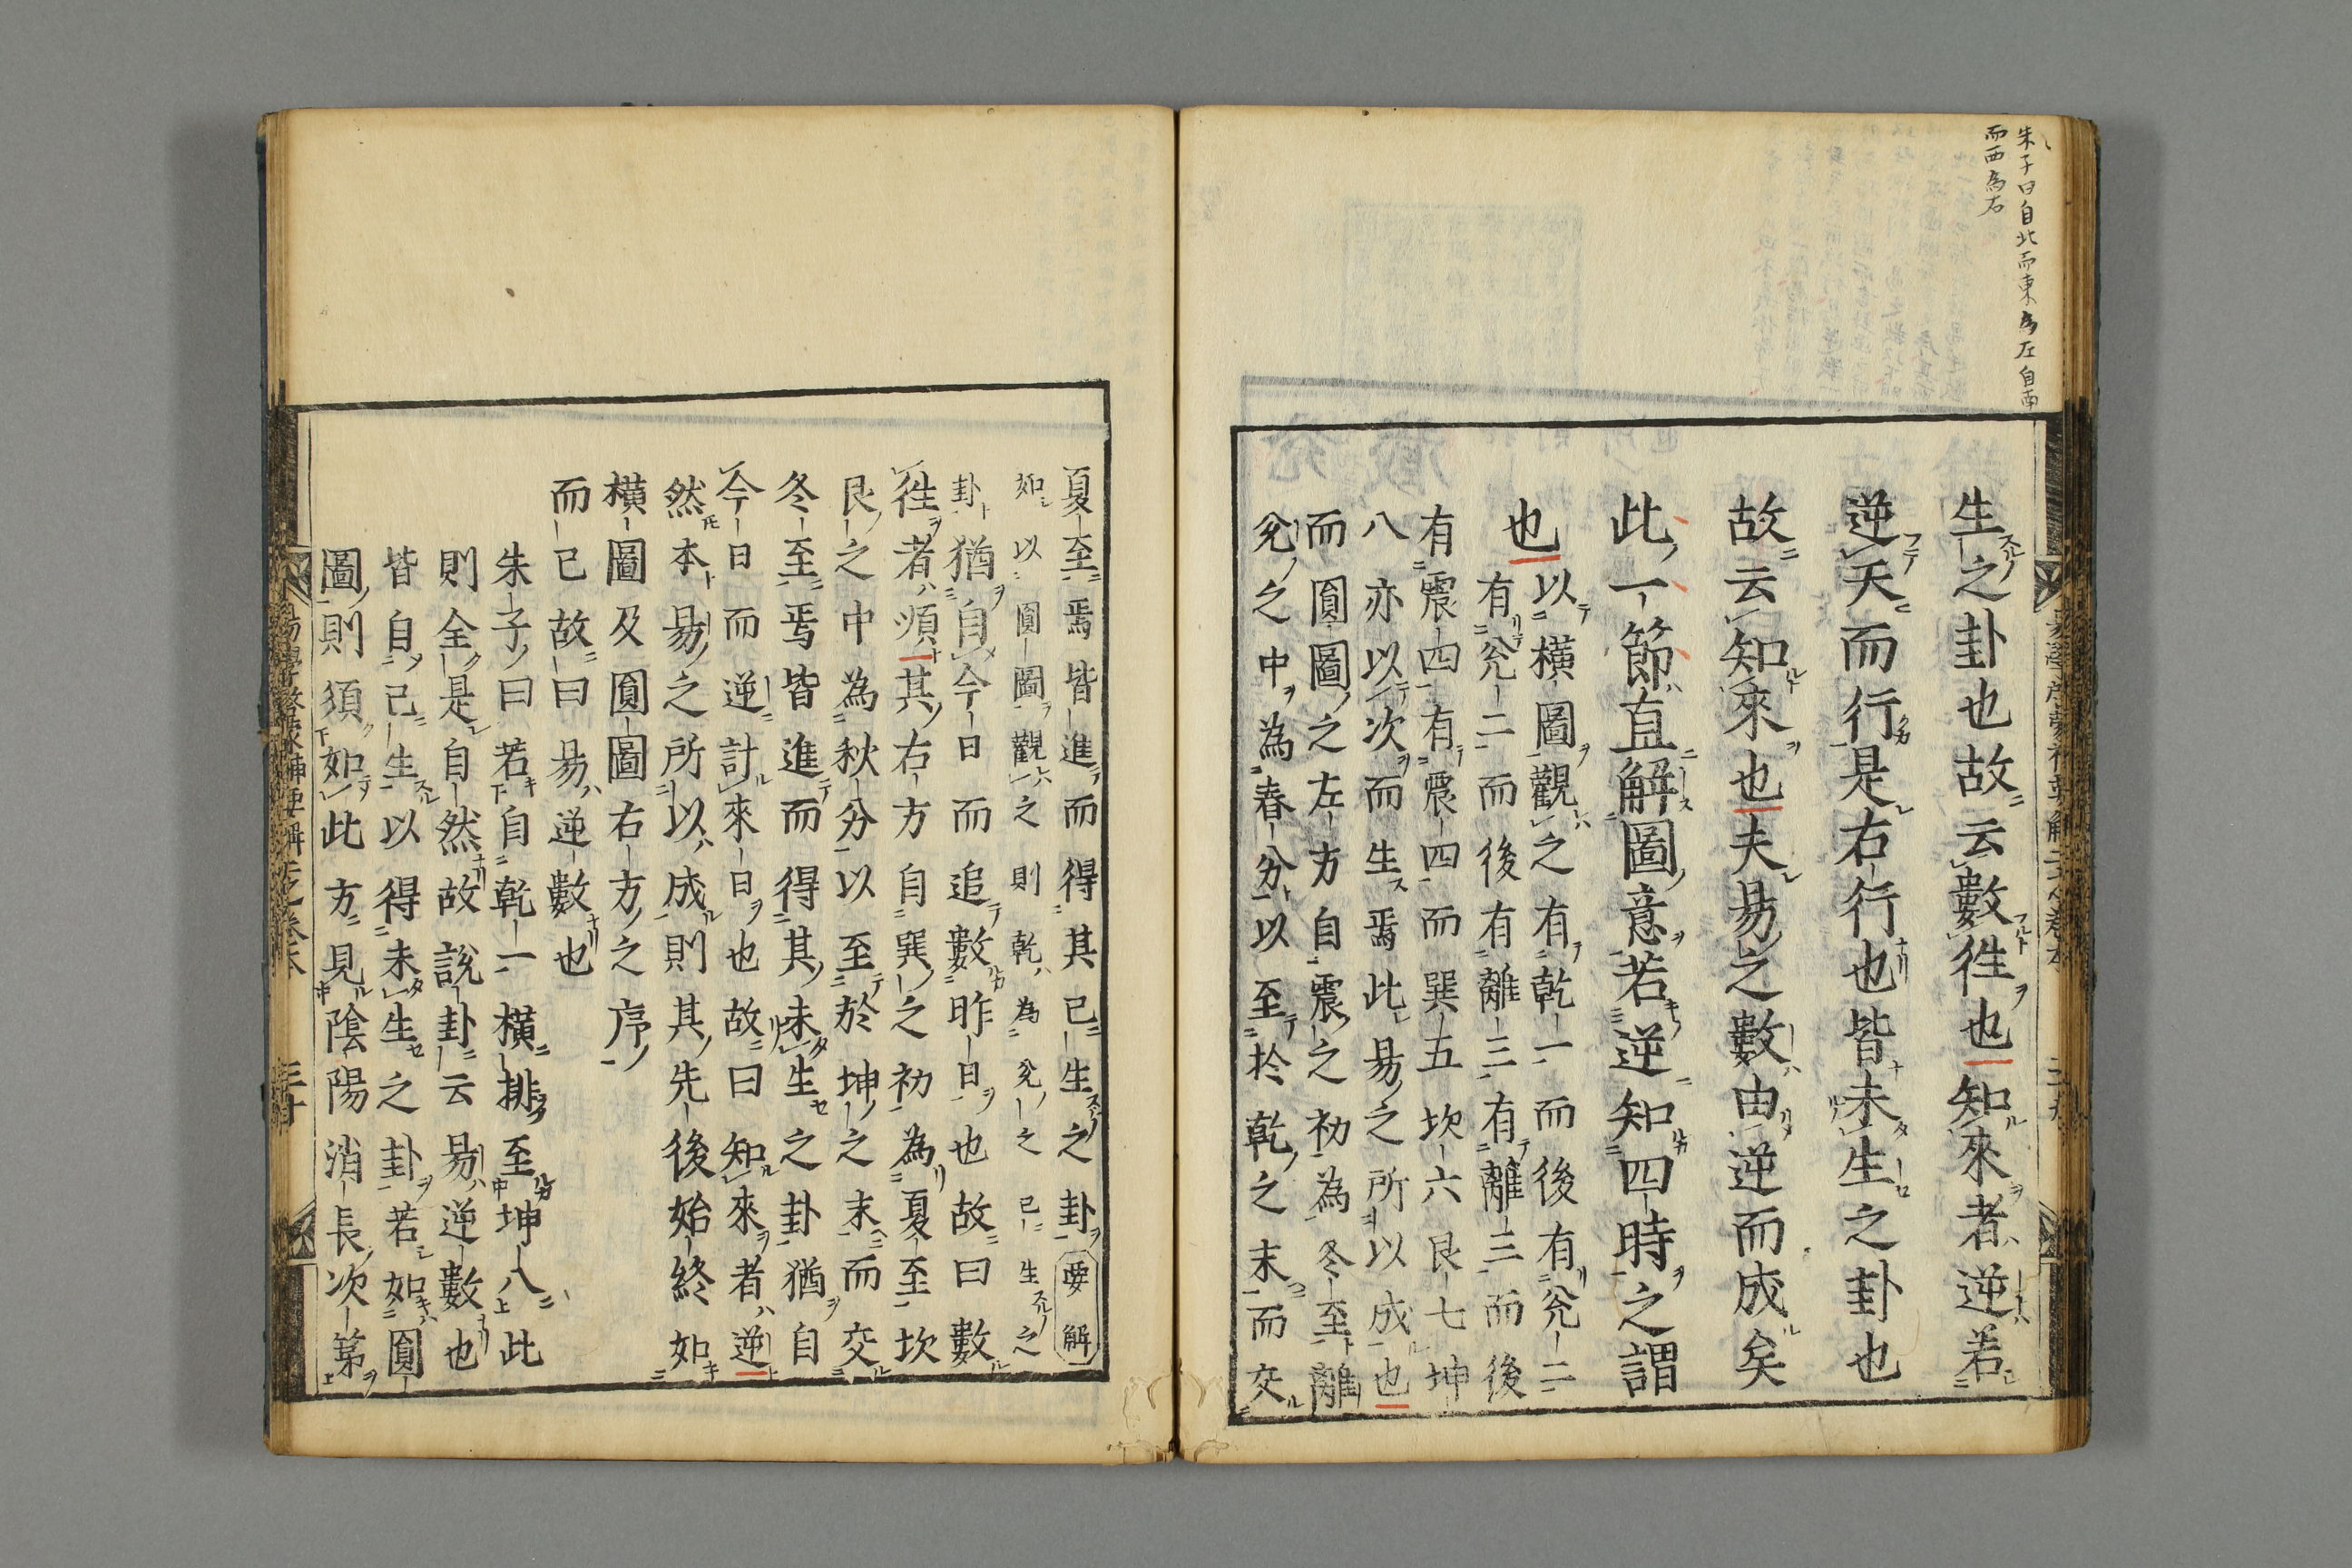 朱子曰自北而東為左自南
而西為右
生之卦也故云數徃也知來者逆若
逆天而行是右行也皆未生之卦也
故云知來也夫易之數由逆而成矣
此一節直解圖意若逆知四時之謂
也
以橫圖觀之有乾一而後有兊二
有兊二而後有離三有離三而後
有震四有震四而巽五坎六艮七坤
八亦以次而生焉此易之所以成也
而圓圖之左方自震之初為冬至離
兊之中為春分以至於乾之末而交
夏至焉皆進而得其已生之卦要解
如以圓圖觀之則乾為兊之已生之
卦猶自今日而追數昨日也故曰數
徃者順其右方自巽之初為夏至坎
艮之中為秋分以至於坤之末而交
冬至焉皆進而得其未生之卦猶自
今日而逆計來日也故曰知來者逆
然本易之所以成則其先後始終如
橫圖及圓圖右方之序
而已故曰易逆數也
朱子曰若自乾一橫排至坤八此
則全是自然故說卦云易逆數也
皆自己生以得未生之卦若如圓
圖則須如此方見陰陽消長次第